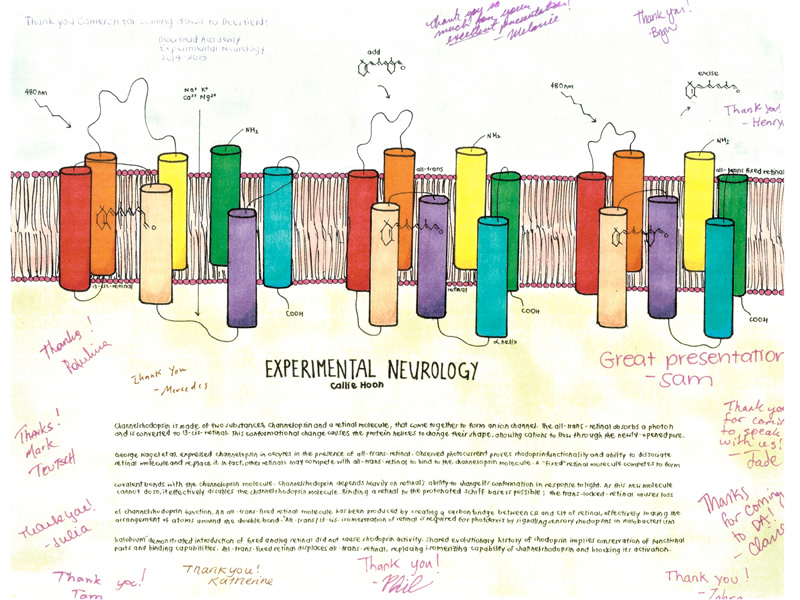 Thank you Cameron for coming down to Deerfield!
Deerfield Academy
Experimental Neurology
2014-2015
Thank you so
much for your
excellent presentation!
- Melanie
Thank you!
-Bryn
add
480nm
Na⁺ K⁺
Ca²⁺ Mg²⁺
NH₂
NH₂
480nm
excise
NH₂
Thank you!
- Henry
all-trans
all-trans fixed retinal
13-cis-retinal
retinal
COOH
COOH
COOH
α helix
Thanks!
Thank You
- Mercedes
EXPERIMENTAL NEUROLOGY
Callie Hoon
Great presentation
-Sam
Channelrhodopsin is made of two substances, channelopsin and a retinal molecule, that come together to form an ion channel. The all-trans-retinal absorbs a photon
and is converted to 13-cis-retinal. This conformational change causes the protein helices to change their shape, allowing cations to flow through the newly-opened pore.
George Nagel et al. expressed channelopsin in oocytes in the presence of all-trans-retinal. Observed photocurrent proves rhodopsin functionality and ability to dissociate
retinal molecule and replace it. In fact, other retinals may compete with all-trans-retinal to bind to the channelopsin molecule. A "fixed" retinal molecule competes to form
covalent bonds with the channelopsin molecule. Channelrhodopsin depends heavily on retinals' ability to change its conformation in response to light. As this new molecule
cannot do so, it effectively disables the channelrhodopsin molecule. Binding a retinal to the protonated schiff base is possible; the trans-locked-retinal causes loss
of channelrhodopsin function. An all-trans-fixed retinal molecule has been produced by creating a carbon bridge between
arrangement of atoms around the double bond. All-trans/13-cis isomerization of retinal is required for phototaxis by signaling sensory rhodopsins in halobacterium
halobium demonstrated introduction of fixed ending retinal did not cause rhodopsin activity. Shared evolutionary history of rhodopsin implies conservation of functional
parts and binding capabilities. All-trans-fixed retinal displaces all-trans-retinal, replacing isomerizing capability of channelrhodopsin and blocking its activation.
Thanks!
Mark
Teutsch
Thank you
for coming
to speak
with us!
- Jade
Thank you!
-Julia
Thanks
for coming
to DA!
Thank you!
Tam
Thank you!
Katherine
Thank you!
-Phil
Thank you!